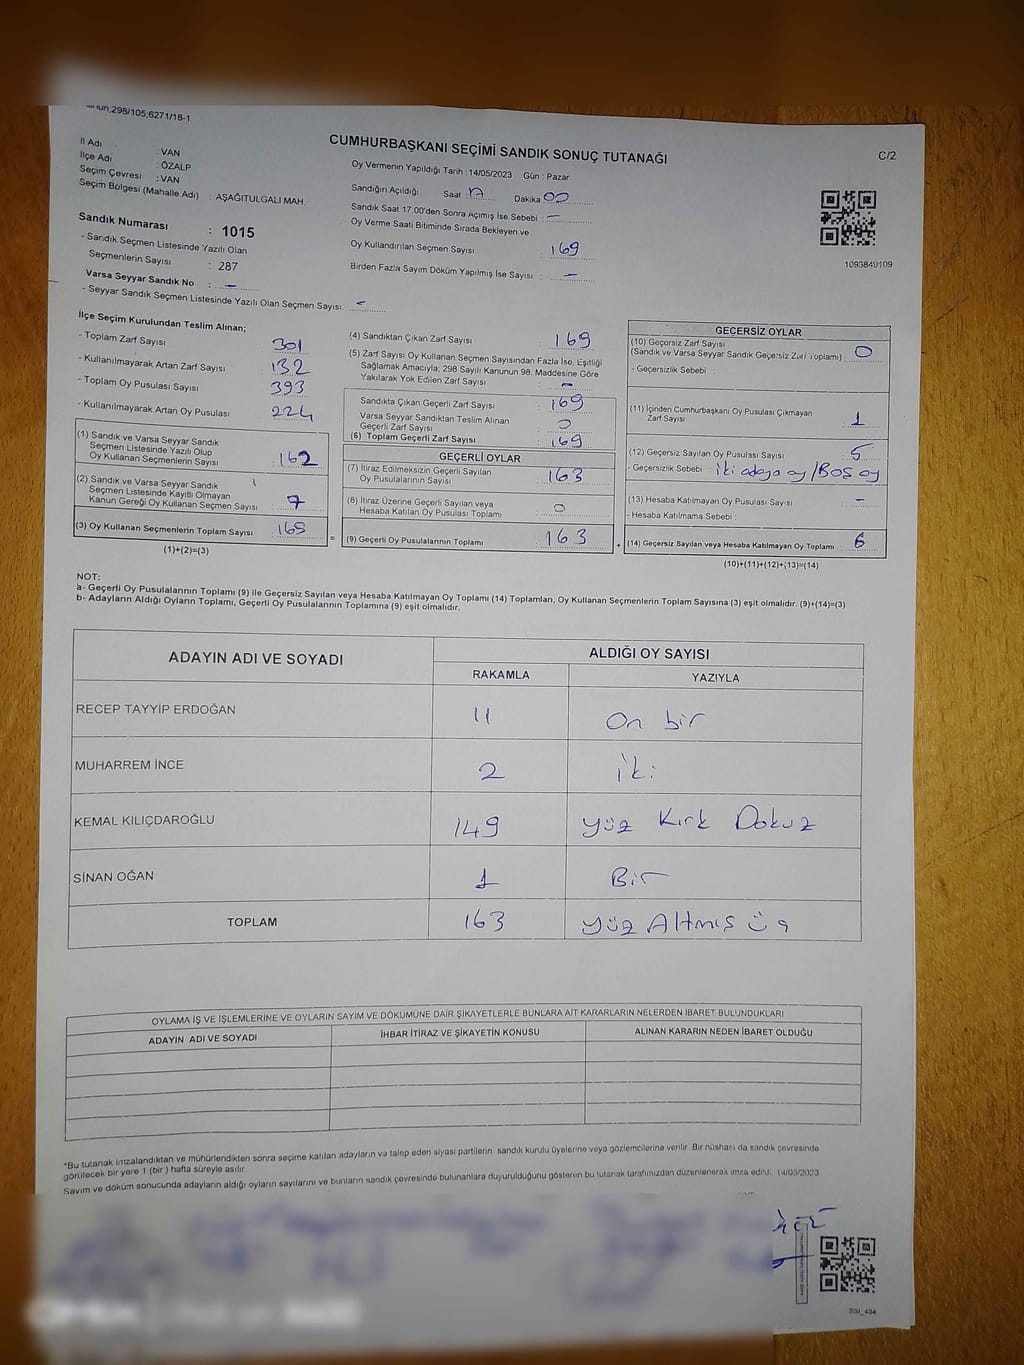 298/105;6271/18-1
CUMHURBAŞKANI SEÇİMİ SANDIK SONUÇ TUTANAĞI
C/2
İl Adı : VAN
İlçe Adı : ÖZALP
Seçim Çevresi : VAN
Seçim Bölgesi (Mahalle Adı) : AŞAĞITULGALI MAH.
Sandık Numarası : 1015
- Sandık Seçmen Listesinde Yazılı Olan
Seçmenlerin Sayısı : 287
Varsa Seyyar Sandık No : –
- Seyyar Sandık Seçmen Listesinde Yazılı Olan Seçmen Sayısı. –
Oy Vermenin Yapıldığı Tarih : 14/05/2023 Gün : Pazar
Sandığın Açıldığı Saat : 17 Dakika : 00
Sandık Saat 17:00'den Sonra Açımış İse Sebebi : –
Oy Verme Saati Bitiminde Sırada Bekleyen ve
Oy Kullandırılan Seçmen Sayısı : 169
Birden Fazla Sayım Döküm Yapılmış İse Sayısı : –
1093849109
İlçe Seçim Kurulundan Teslim Alınan;
- Toplam Zarf Sayısı 301
- Kullanılmayarak Artan Zarf Sayısı 132
- Toplam Oy Pusulası Sayısı 393
- Kullanılmayarak Artan Oy Pusulası 224
(1) Sandık ve Varsa Seyyar Sandık
Seçmen Listesinde Yazılı Olup
Oy Kullanan Seçmenlerin Sayısı 162
(2) Sandık ve Varsa Seyyar Sandık
Seçmen Listesinde Kayıtlı Olmayan
Kanun Gereği Oy Kullanan Seçmen Sayısı 7
(3) Oy Kullanan Seçmenlerin Toplam Sayısı 169
(1)+(2)=(3)
(4) Sandıktan Çıkan Zarf Sayısı 169
(5) Zarf Sayısı Oy Kullanan Seçmen Sayısından Fazla İse, Eşitliği
Sağlamak Amacıyla; 298 Sayılı Kanunun 98. Maddesine Göre
Yakılarak Yok Edilen Zarf Sayısı –
Sandıkta Çıkan Geçerli Zarf Sayısı 169
Varsa Seyyar Sandıktan Teslim Alınan
Geçerli Zarf Sayısı 0
(6) Toplam Geçerli Zarf Sayısı 169
GEÇERLİ OYLAR
(7) İtiraz Edilmeksizin Geçerli Sayılan
Oy Pusulalarının Sayısı 163
(8) İtiraz Üzerine Geçerli Sayılan veya
Hesaba Katılan Oy Pusulası Toplamı 0
= (9) Geçerli Oy Pusulalarının Toplamı 163
GEÇERSİZ OYLAR
(10) Geçersiz Zarf Sayısı
(Sandık ve Varsa Seyyar Sandık Geçersiz Zarf Toplamı) : 0
- Geçersizlik Sebebi :
(11) İçinden Cumhurbaşkanı Oy Pusulası Çıkmayan
Zarf Sayısı 1
(12) Geçersiz Sayılan Oy Pusulası Sayısı 5
- Geçersizlik Sebebi : iki adaya oy / Boş oy
(13) Hesaba Katılmayan Oy Pusulası Sayısı –
- Hesaba Katılmama Sebebi :
+ (14) Geçersiz Sayılan veya Hesaba Katılmayan Oy Toplamı 6
(10)+(11)+(12)+(13)=(14)
NOT:
a- Geçerli Oy Pusulalarının Toplamı (9) ile Geçersiz Sayılan veya Hesaba Katılmayan Oy Toplamı (14) Toplamları, Oy Kullanan Seçmenlerin Toplam Sayısına (3) eşit olmalıdır. (9)+(14)=(3)
b- Adayların Aldığı Oyların Toplamı, Geçerli Oy Pusulalarının Toplamına (9) eşit olmalıdır.
ADAYIN ADI VE SOYADI
ALDIĞI OY SAYISI
RAKAMLA YAZIYLA
RECEP TAYYİP ERDOĞAN 11 On bir
MUHARREM İNCE 2 iki
KEMAL KILIÇDAROĞLU 149 yüz Kırk Dokuz
SİNAN OĞAN 1 Bir
TOPLAM 163 yüz Altmış üç
OYLAMA İŞ VE İŞLEMLERİNE VE OYLARIN SAYIM VE DÖKÜMÜNE DAİR ŞİKAYETLERLE BUNLARA AİT KARARLARIN NELERDEN İBARET BULUNDUKLARI
ADAYIN ADI VE SOYADI İHBAR İTİRAZ VE ŞİKAYETİN KONUSU ALINAN KARARIN NEDEN İBARET OLDUĞU
*Bu tutanak imzalandıktan ve mühürlendikten sonra seçime katılan adayların ve talep eden siyasi partilerin sandık kurulu üyelerine veya gözlemcilerine verilir. Bir nüshası da sandık çevresinde
görülecek bir yere 1 (bir) hafta süreyle asılır.
Sayım ve döküm sonucunda adayların aldığı oyların sayılarını ve bunların sandık çevresinde bulunanlara duyurulduğunu gösteren bu tutanak tarafımızdan düzenlenerek imza edildi. 14/05/2023
SSI_404